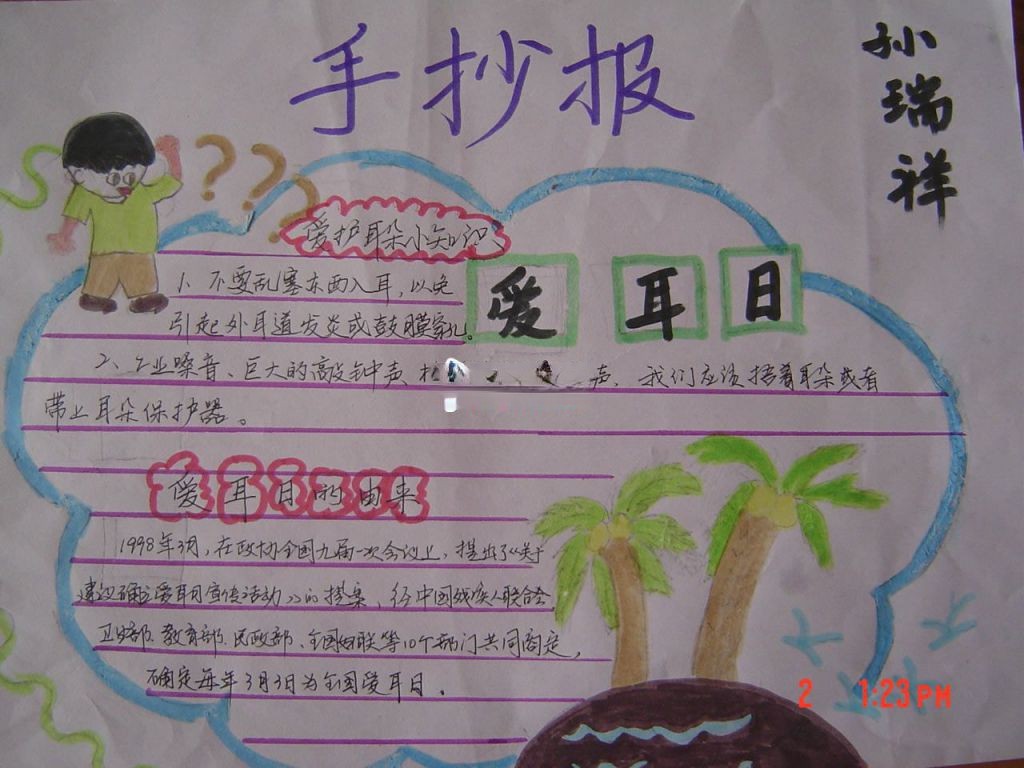 手抄报
孙瑞祥
???
爱护耳朵小知识
爱耳日
1、不要乱塞东西入耳,以免
引起外耳道发炎或鼓膜穿孔。
2、工业噪音、巨大的高波钟声、声,我们应该捂着耳朵或者
带上耳朵保护器。
爱耳日的由来
1998年3月,在政协全国九届一次会议上,提出了《关于
建议确立爱耳日宣传活动》的提案,经中国残疾人联合会
卫生部、教育部、民政部、全国妇联等10个部门共同商定,
确定每年3月3日为全国爱耳日。
2 1:23PM